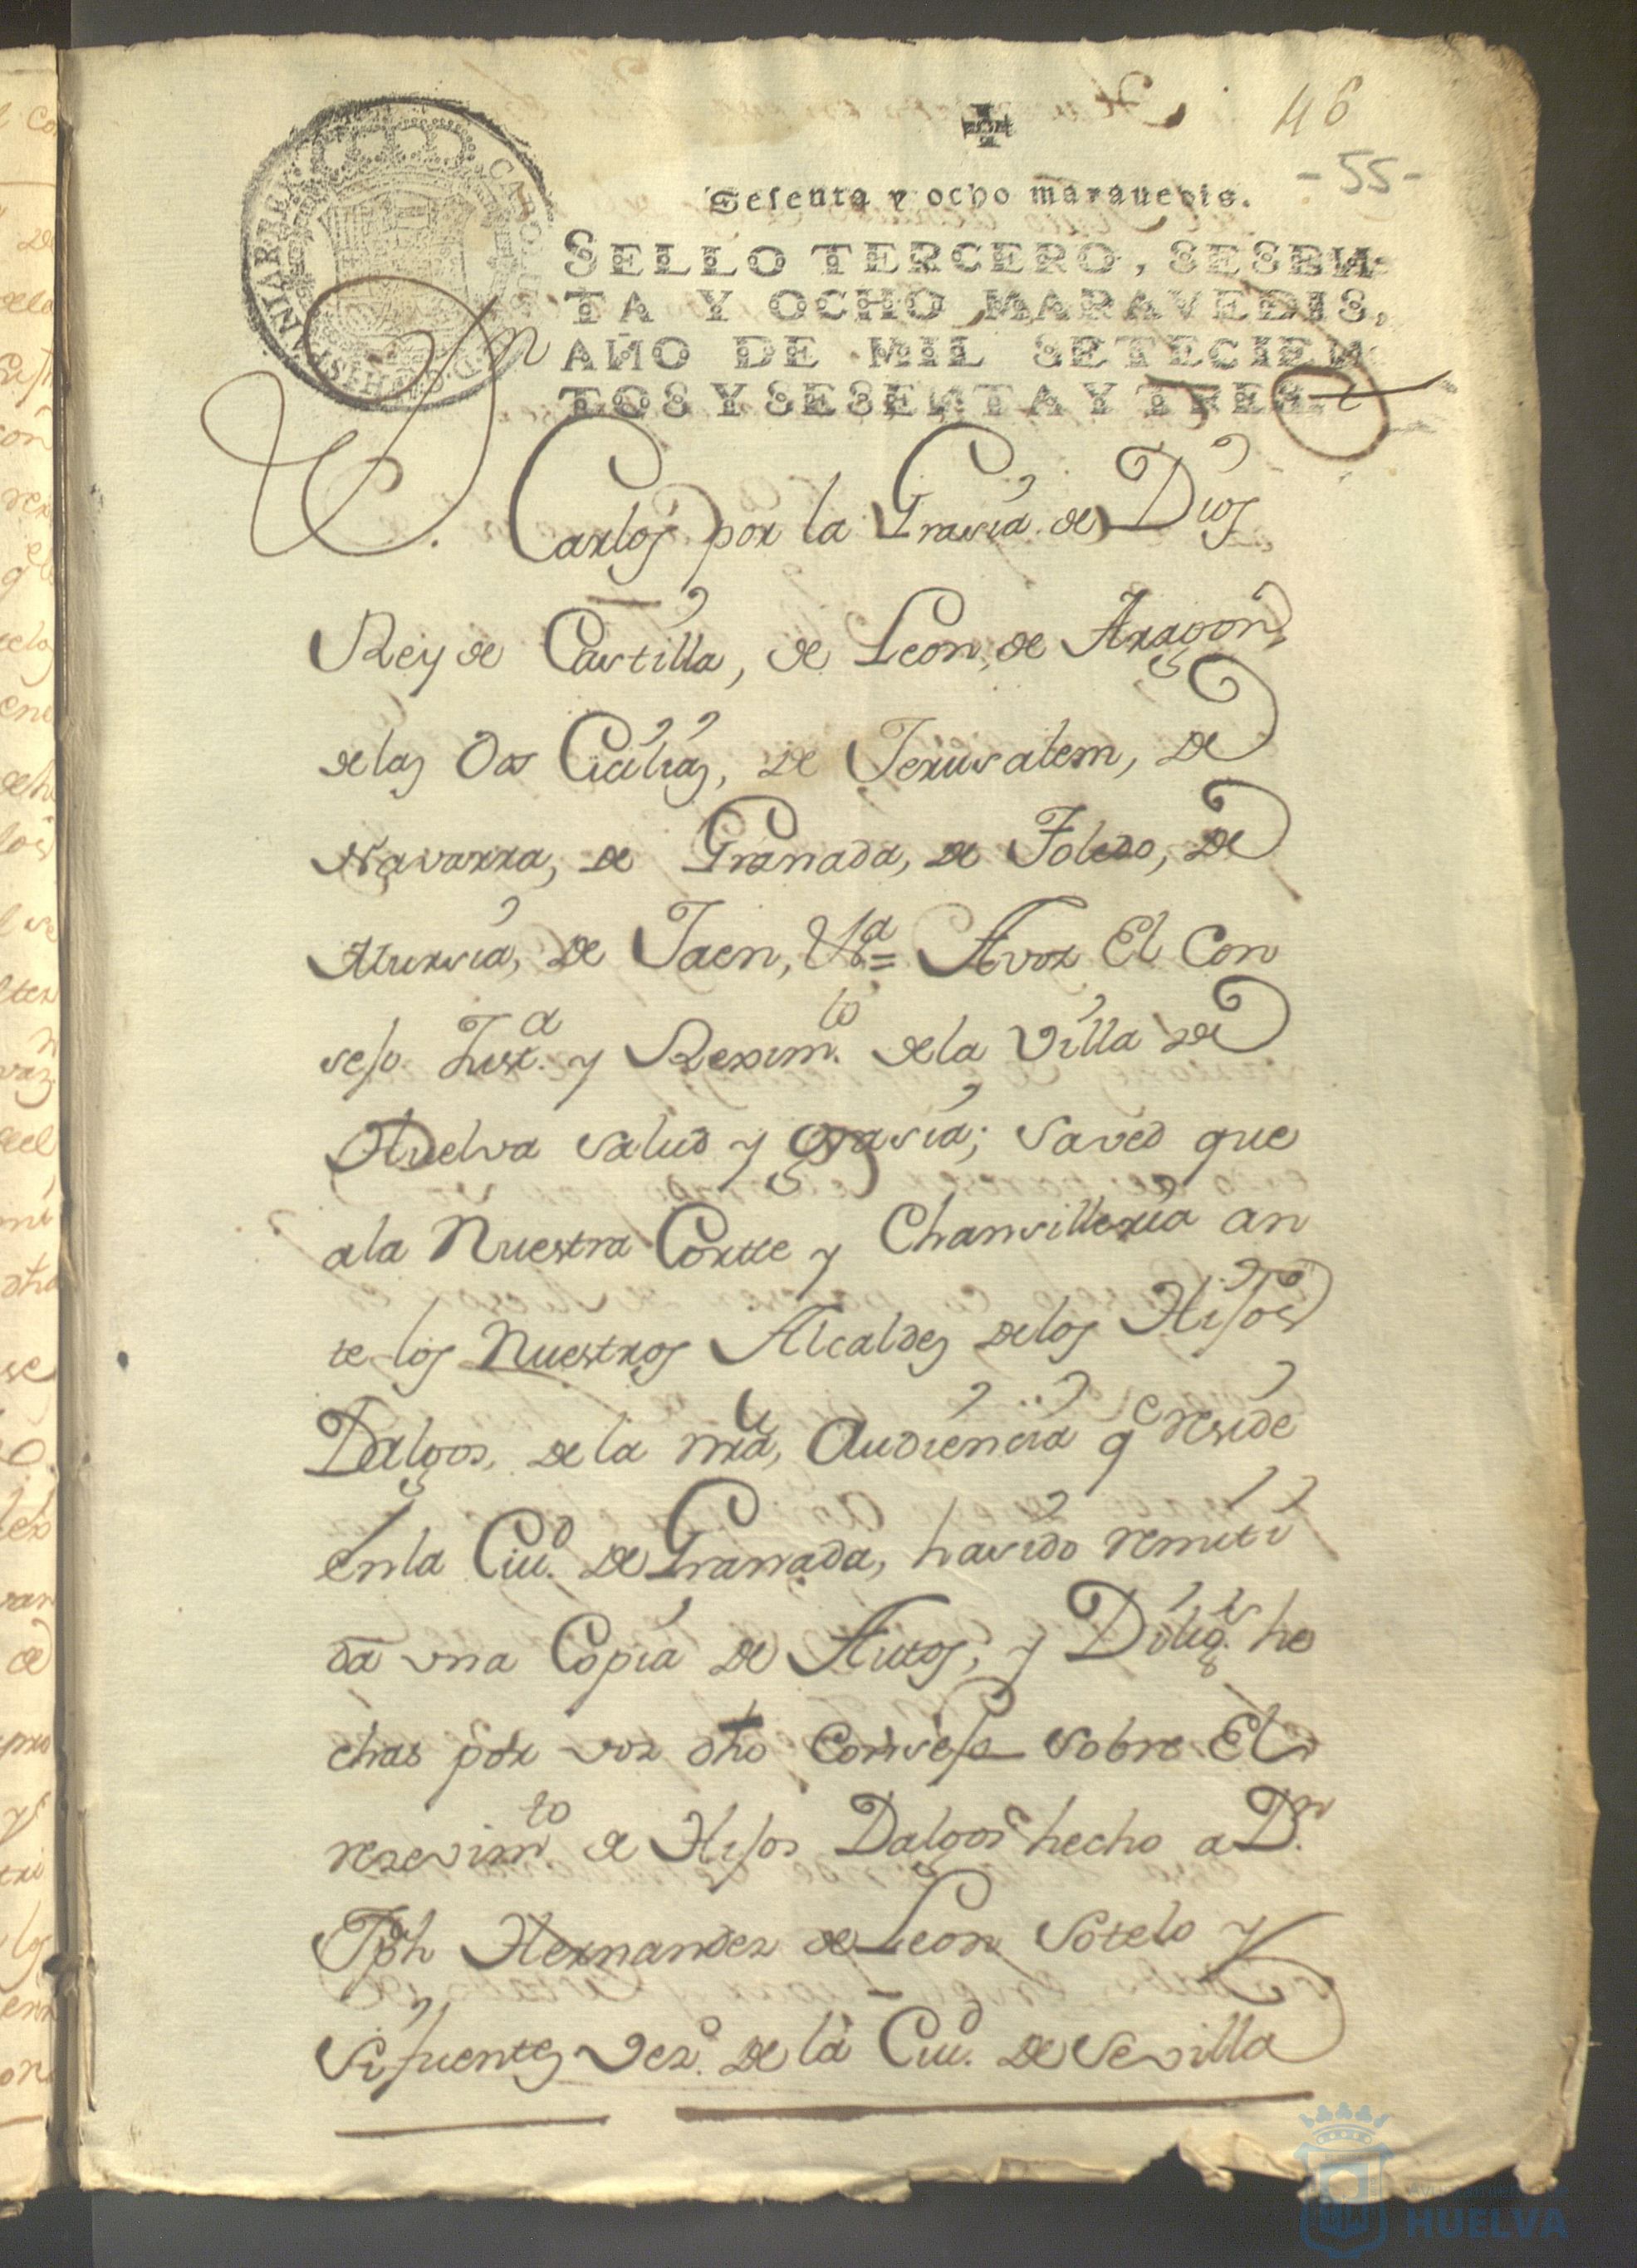 46
-55-
Sesenta y ocho maravedis.
SELLO TERCERO, SESEN-
TA Y OCHO MARAVEDIS,
AÑO DE MIL SETECIEN-
TOS Y SESENTA Y TRES.
CAROLUS
D.G. HISPANIAR REX
Dn
Carlos por la Grasia de Dios
Rey de Castilla, de Leon, de Aragon,
de las Dos Cicilias, de Jerusalem, de
Navarra, de Granada, de Toledo, de
Mursia, de Jaen, &a = A vos El Con
sejo Justa. y Reximto. de la Villa de
Huelva salud y grasia; saved que
a la Nuestra Cortte y Chansilleria an
te los Nuestros Alcaldes de los Hijos
Dalgos, de la nra, Audiencia qe reside
en la Ciud. de Granada, ha sido remiti
da una Copia de Autos, y Diligs. he
chas por vos dho Consejo sobre El
resevimto de Hijos Dalgos hecho a Dn.
Jph Hernandez de Leon Sotelo y
Sifuentes Vezo. de la Ciud. de Sevilla
Ayuntamiento de
HUELVA